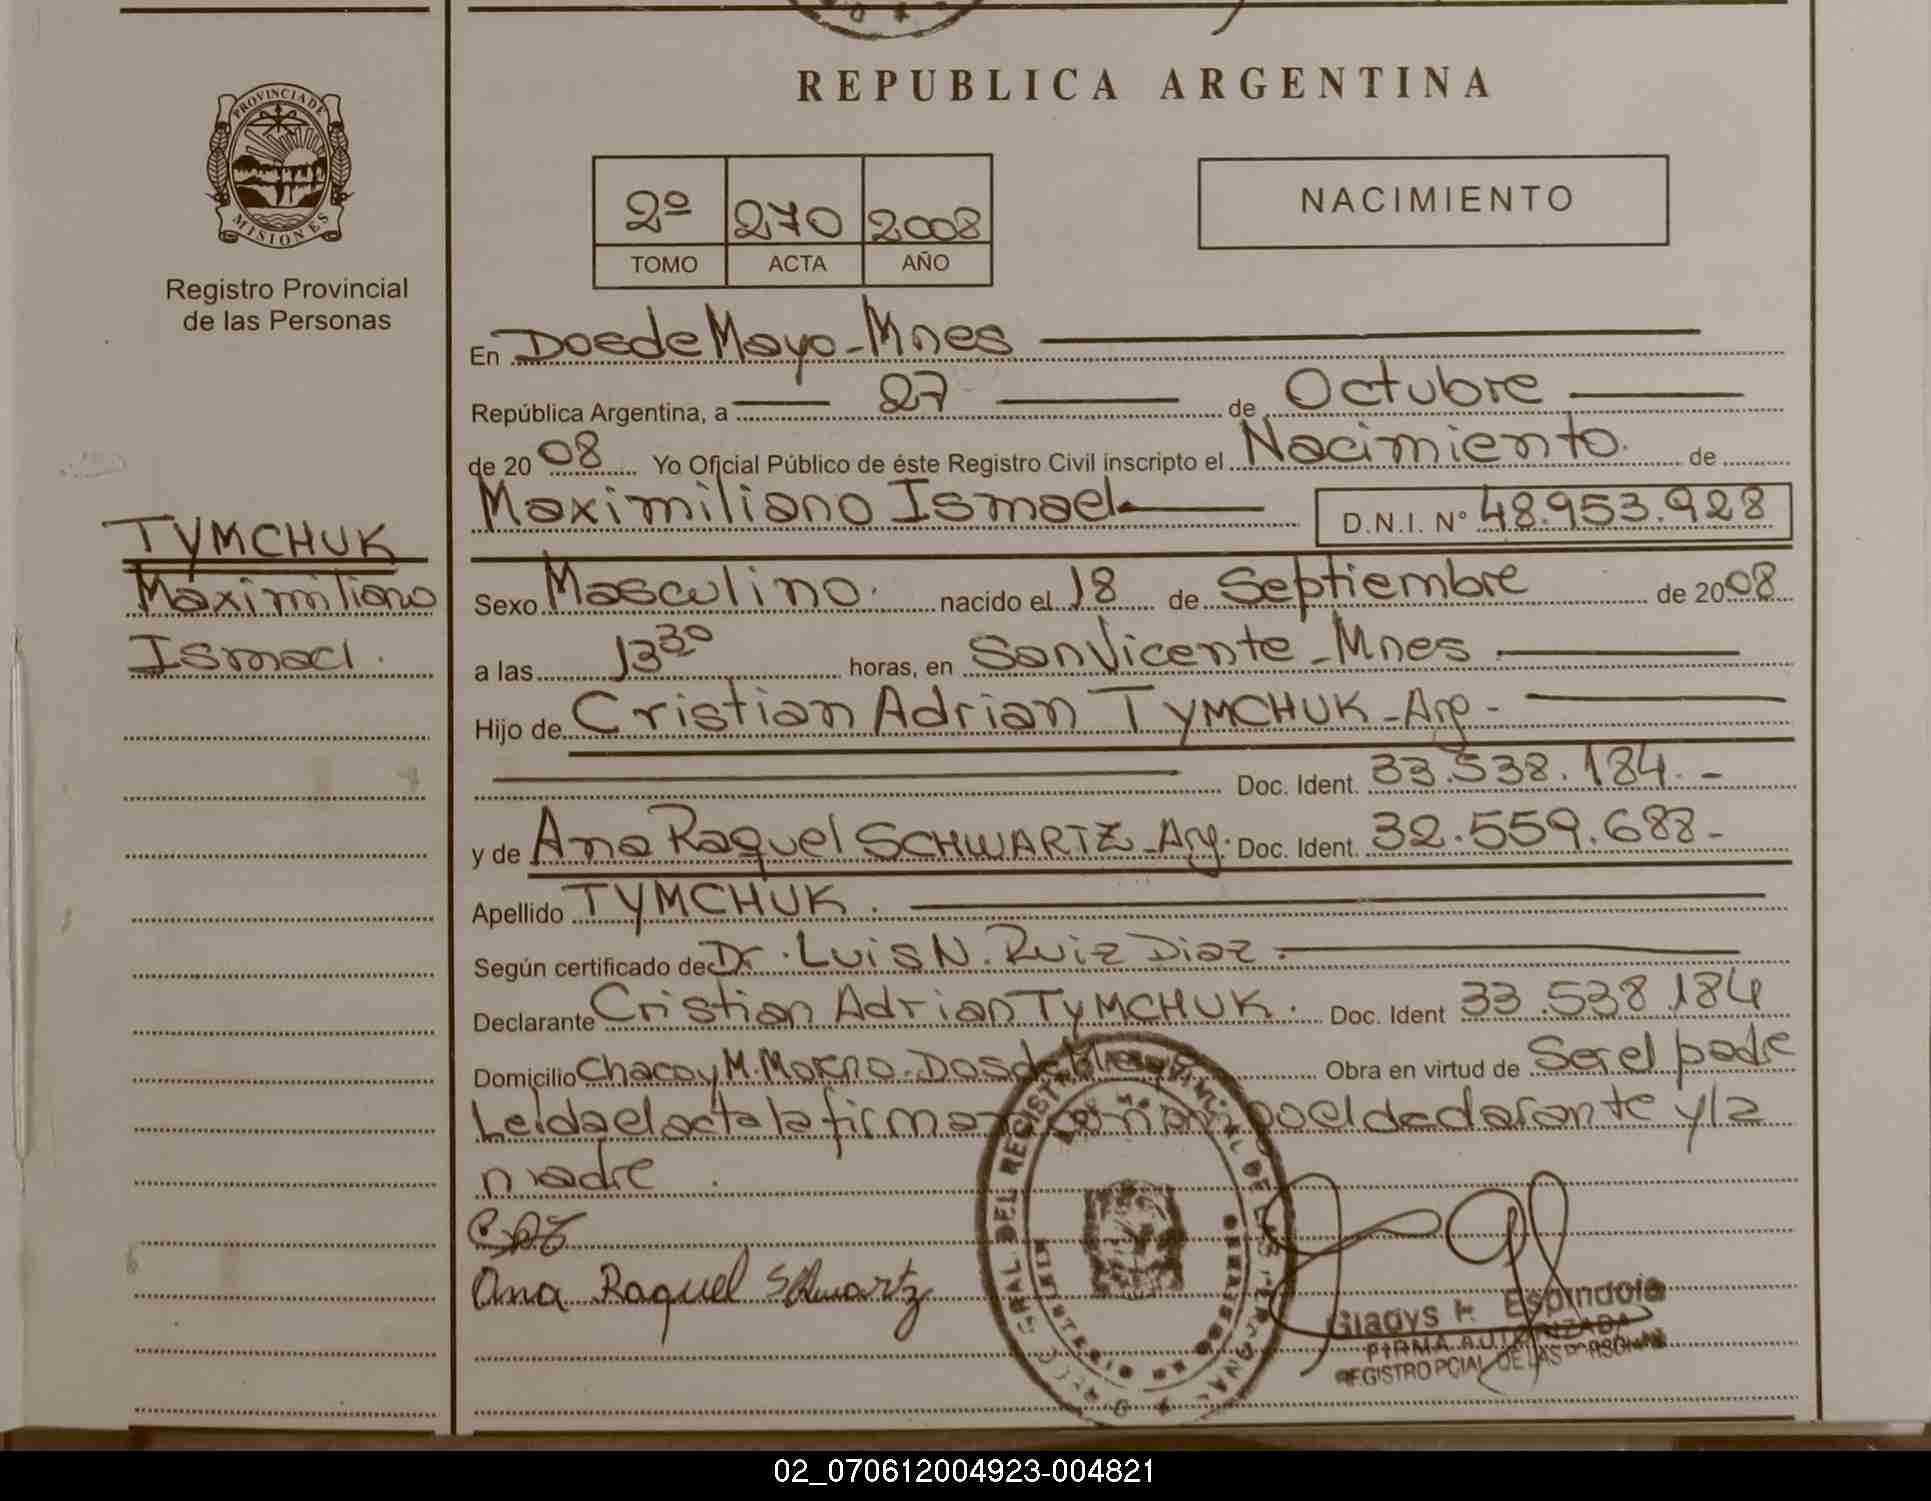 REPUBLICA ARGENTINA
PROVINCIA DE
MISIONES
Registro Provincial
de las Personas
2º 270 2008
TOMO ACTA AÑO
NACIMIENTO
En Dos de Mayo - Mnes
República Argentina, a 27 de Octubre
de 2008 Yo Oficial Público de éste Registro Civil inscripto el Nacimiento. de
Maximiliano Ismael D.N.I. Nº 48.953.928
TYMCHUK
Maximiliano
Ismael.
Sexo Masculino. nacido el 18 de Septiembre de 2008
a las 13 30 horas, en San Vicente - Mnes
Hijo de Cristian Adrian TYMCHUK - Arg -
Doc. Ident. 33.538.184. -
y de Ana Raquel SCHWARTZ - Arg. Doc. Ident. 32.559.688 -
Apellido TYMCHUK.
Según certificado de Dr. Luis N. Ruiz Diaz.
Declarante Cristian Adrian TYMCHUK. Doc. Ident 33.538.184
Domicilio Chaco y M. Moreno - Dos de Mayo Obra en virtud de Ser el padre
Leida el acta la firman el declarante y la
madre.
Ana Raquel Schwartz
Gladys Espindola
FIRMA AUTORIZADA
REGISTRO PCIAL DE LAS PERSONAS
02_070612004923-004821